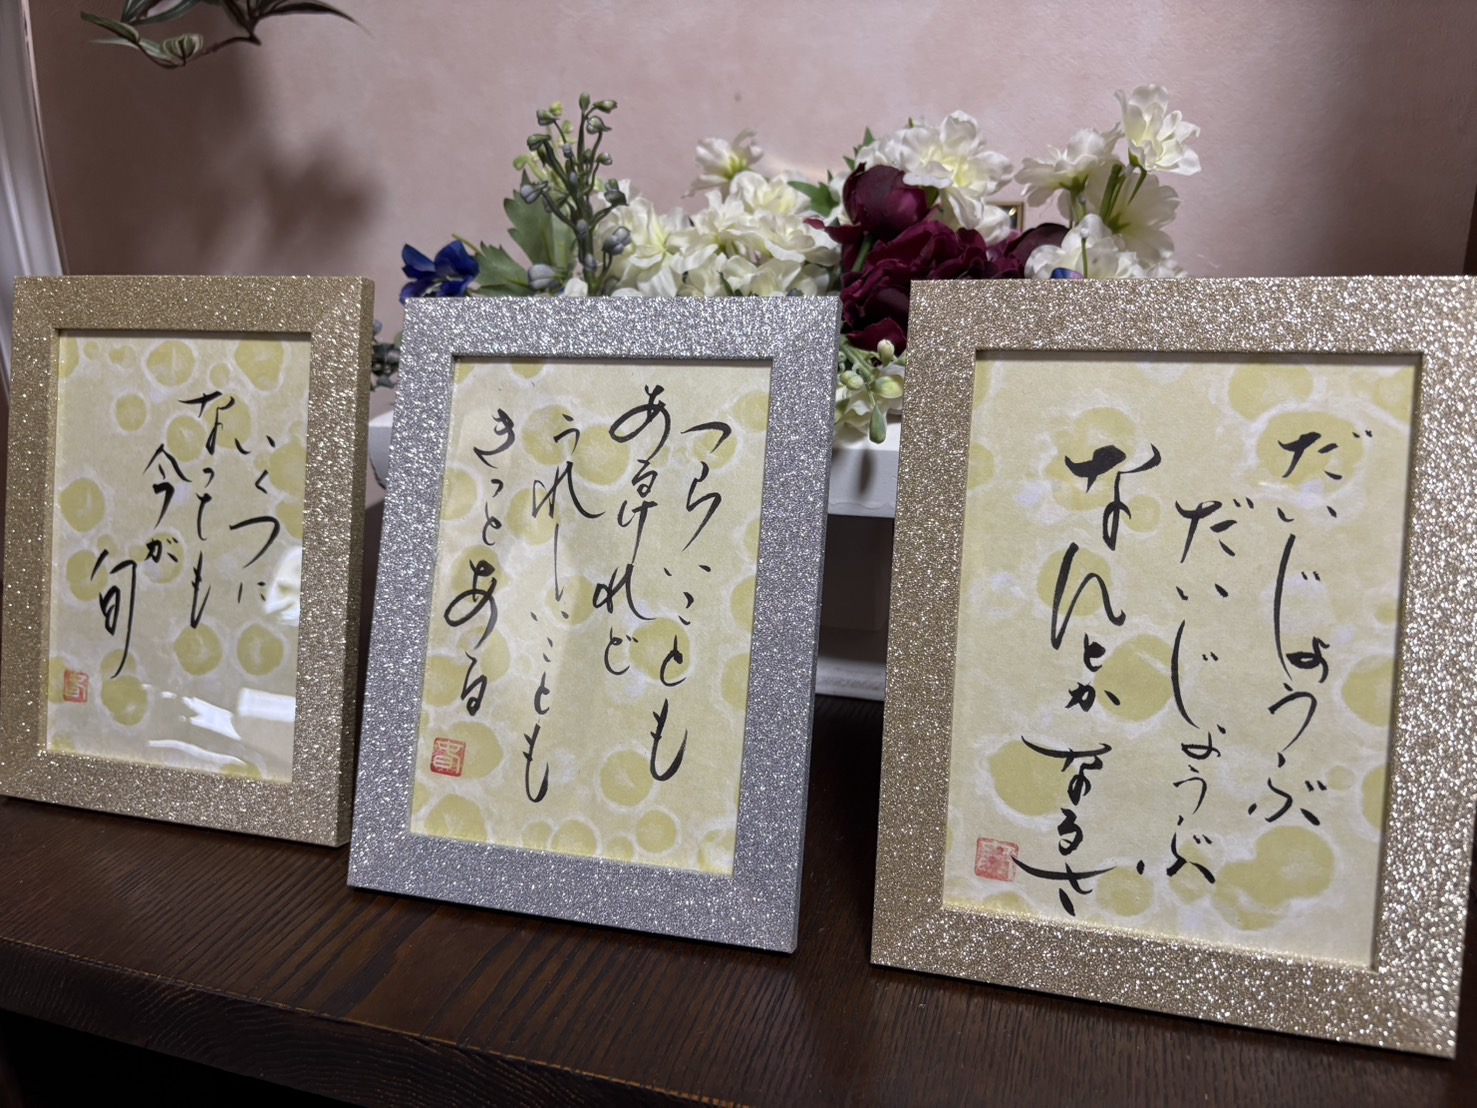 いくつに
なっても
今が
旬
つらいことも
あるけれど
うれしいことも
きっとある
だいじょうぶ
だいじょうぶ
なんとかなるさ